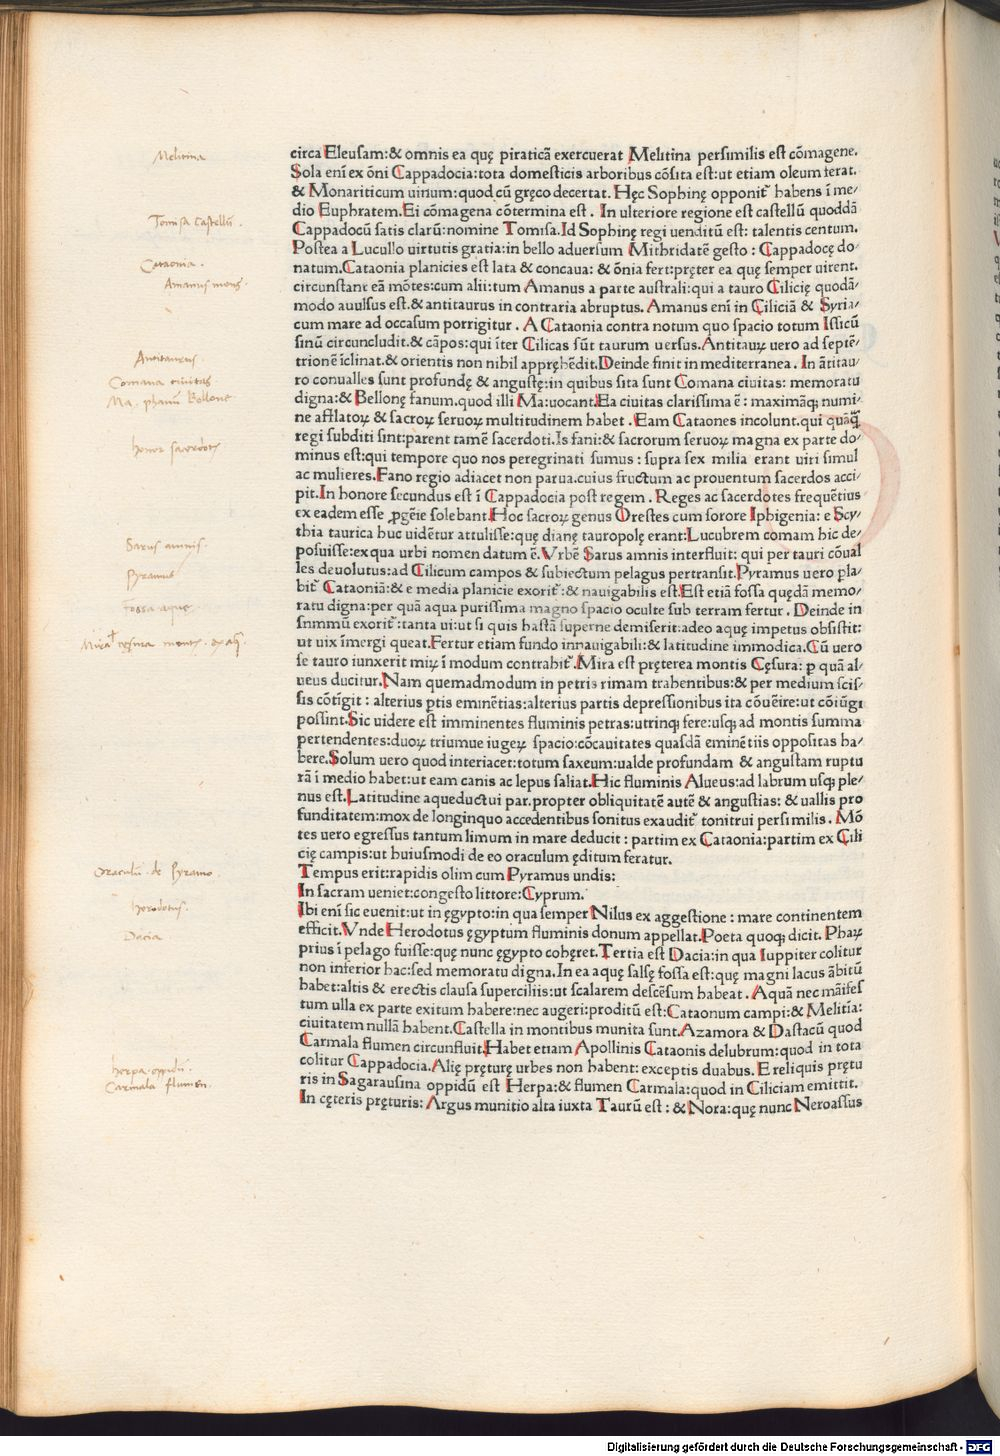 circa Eleusam:& omnis ea quę piraticā exercuerat Melitina persimilis est cōmagene.
Sola enī ex ōni Cappadocia:tota domesticis arboribus cōsita est:ut etiam oleum ferat.
& Monariticum uinum:quod cū gręco decertat. Hęc Sophinę opponit᷑ habens ī me/
dio Euphratem.Ei cōmagena cōtermina est . In ulteriore regione est castellū quoddā
Cappadocū satis clarū:nomine Tomisa.Id Sophinę regi uenditū est: talentis centum.
Postea a Lucullo uirtutis gratia:in bello aduersum Mithridatē gesto : Cappadocę do/
natum.Cataonia planicies est lata & concaua: & ōnia fert:pręter ea quę semper uirent.
circunstant eā mōtes:cum alii:tum Amanus a parte australi:qui a tauro Cilicię quodā/
modo auulsus est.& antitaurus in contraria abruptus. Amanus enī in Ciliciā & Syria/
cum mare ad occasum porrigitur . A Cataonia contra notum quo spacio totum Issicū
sinū circuncludit.& cāpos:qui īter Cilicas sūt taurum uersus.Antitauꝝ uero ad septē/
trionē īclinat.& orientis non nihil appręhēdit.Deinde finit in mediterranea . In ātitau/
ro conualles sunt profundę & angustę:in quibus sita sunt Comana ciuitas: memoratu
digna:& Bellonę fanum.quod illi Ma:uocant.Ea ciuitas clarissima ē : maximāqꝫ numi/
ne afflatoꝝ & sacroꝝ seruoꝝ multitudinem habet . Eam Cataones incolunt.qui quāꝙ
regi subditi sint:parent tamē sacerdoti.Is fani:& sacrorum seruoꝝ magna ex parte do/
minus est:qui tempore quo nos peregrinati sumus : supra sex milia erant uiri simul
ac mulieres.Fano regio adiacet non parua.cuius fructum ac prouentum sacerdos acci/
pit.In honore secundus est ī Cappadocia post regem . Reges ac sacerdotes frequētius
ex eadem esse ꝓgēie solebant.Hoc sacroꝝ genus Orestes cum sorore Iphigenia: e Scy/
thia taurica huc uidētur attulisse:quę dianę tauropolę erant:Lucubrem comam hic de/
posuisse:ex qua urbi nomen datum ē.Vrbē Sarus amnis interfluit: qui per tauri cōual
les deuolutus:ad Cilicum campos & subiectum pelagus pertransit.Pyramus uero pla/
bit᷑ Cataoniā:& e media planicie exorit᷑:& nauigabilis est.Est etiā fossa quędā memo/
ratu digna:per quā aqua purissima magno spacio oculte sub terram fertur . Deinde in
snmmū exorit᷑:tanta ui:ut si quis hastā superne demiserit:adeo aquę impetus obsistit:
ut uix īmergi queat.Fertur etiam fundo innauigabili:& latitudine immodica.Cū uero
se tauro iunxerit miꝝ ī modum contrahit᷑.Mira est pręterea montis Cęsura: ꝑ quā al/
ueus ducitur.Nam quemadmodum in petris rimam trahentibus:& per medium scis/
sis cōtīgit : alterius ꝑtis eminētias:alterius partis depressionibus ita cōuēire:ut cōiūgi
possint.Sic uidere est imminentes fluminis petras:utrinqꝫ fere:usqꝫ ad montis summa
pertendentes:duoꝝ triumue iugeꝝ spacio:cōcauitates quasdā eminētiis oppositas ha/
bere.Solum uero quod interiacet:totum saxeum:ualde profundam & angustam ruptu
rā ī medio habet:ut eam canis ac lepus saliat.Hic fluminis Alueus:ad labrum usqꝫ ple/
nus est.Latitudine aqueductui par.propter obliquitatē autē & angustias: & uallis pro
funditatem:mox de longinquo accedentibus sonitus exaudit᷑ tonitrui persimilis . Mō
tes uero egressus tantum limum in mare deducit : partim ex Cataonia:partim ex Cili
cię campis:ut huiusmodi de eo oraculum ęditum feratur.
Tempus erit:rapidis olim cum Pyramus undis:
In sacram ueniet:congesto littore:Cyprum.
Ibi enī sic euenit:ut in ęgypto:in qua semper Nilus ex aggestione : mare continentem
efficit.Vnde Herodotus ęgyptum fluminis donum appellat.Poeta quoqꝫ dicit. Phaꝝ
prius ī pelago fuisse:quę nunc ęgypto cohęret.Tertia est Dacia:in qua Iuppiter colitur
non inferior hac:sed memoratu digna.In ea aquę salsę fossa est:quę magni lacus ābitū
habet:altis & erectis clausa superciliis:ut scalarem descēsum habeat . Aquā nec māifes
tum ulla ex parte exitum habere:nec augeri:proditū est:Cataonum campi:& Melitia:
ciuitatem nullā habent.Castella in montibus munita sunt.Azamora & Dastacū quod
Carmala flumen circunfluit.Habet etiam Apollinis Cataonis delubrum:quod in tota
colitur Cappadocia.Alię pręturę urbes non habent: exceptis duabus. E reliquis prętu
ris in Sagarausina oppidū est Herpa:& flumen Carmala:quod in Ciliciam emittit.
In cęteris pręturis: Argus munitio alta iuxta Taurū est : & Nora:quę nunc Neroassus
Melitina
Tomisa Castellū .
Cataonia .
Amanus mons .
Antitaurus .
Comana ciuitas
Ma . phanū Bellone
honor sacerdotis
Sarus amnis .
Pyramus
Fossa aque
cęsura montis . ex aq
Oraculū de Pyramo .
herodotus .
Dacia
herpa oppidū .
Carmala flumen .
Digitalisierung gefördert durch die Deutsche Forschungsgemeinschaft - DFG